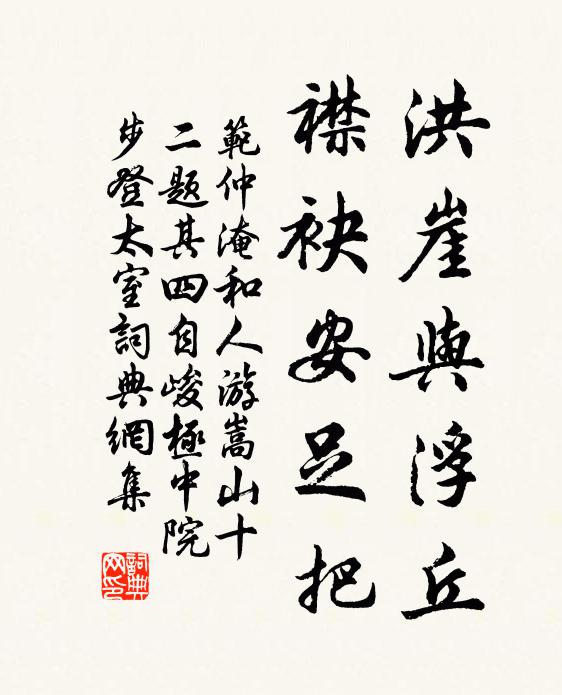 洪崖與浮丘
襟袂安足把
範仲淹和人游嵩山十
二題其四自峻極中院
步登太室詞典網集
詞典
网印